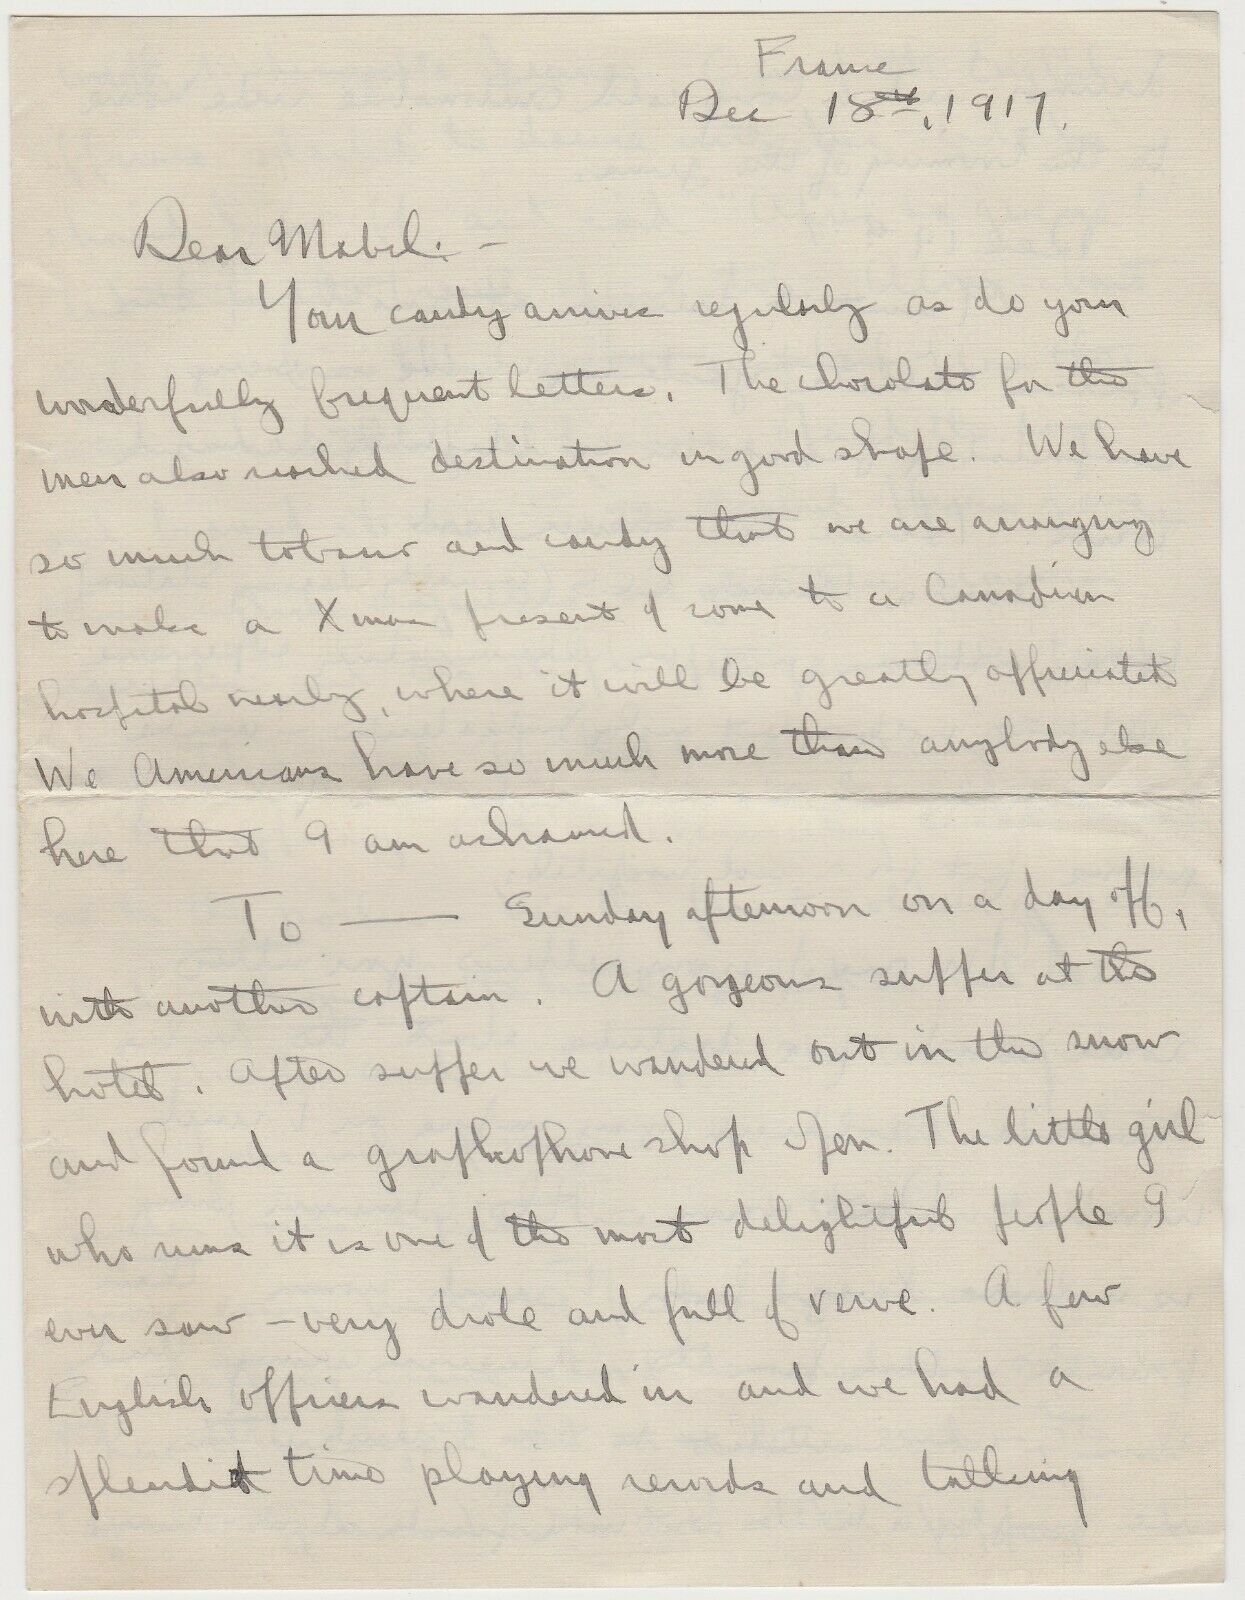 France
Dec 18th, 1917.
Dear Mabel: -
Your candy arrives regularly as do your
wonderfully frequent letters. The chocolate for the
men also reached destination in good shape. We have
so much tobacco and candy that we are arranging
to make a Xmas present of some to a Canadian
hospital nearby, where it will be greatly appreciated
We Americans have so much more than anybody else
here that I am ashamed.
To —— Sunday afternoon on a day off,
with another captain. A gorgeous supper at the
hotel. After supper we wandered out in the snow
and found a graphophone shop open. The little girl
who runs it is one of the most delightful people I
ever saw - very drole and full of verve. A few
English officers wandered in and we had a
splendid time playing records and talking